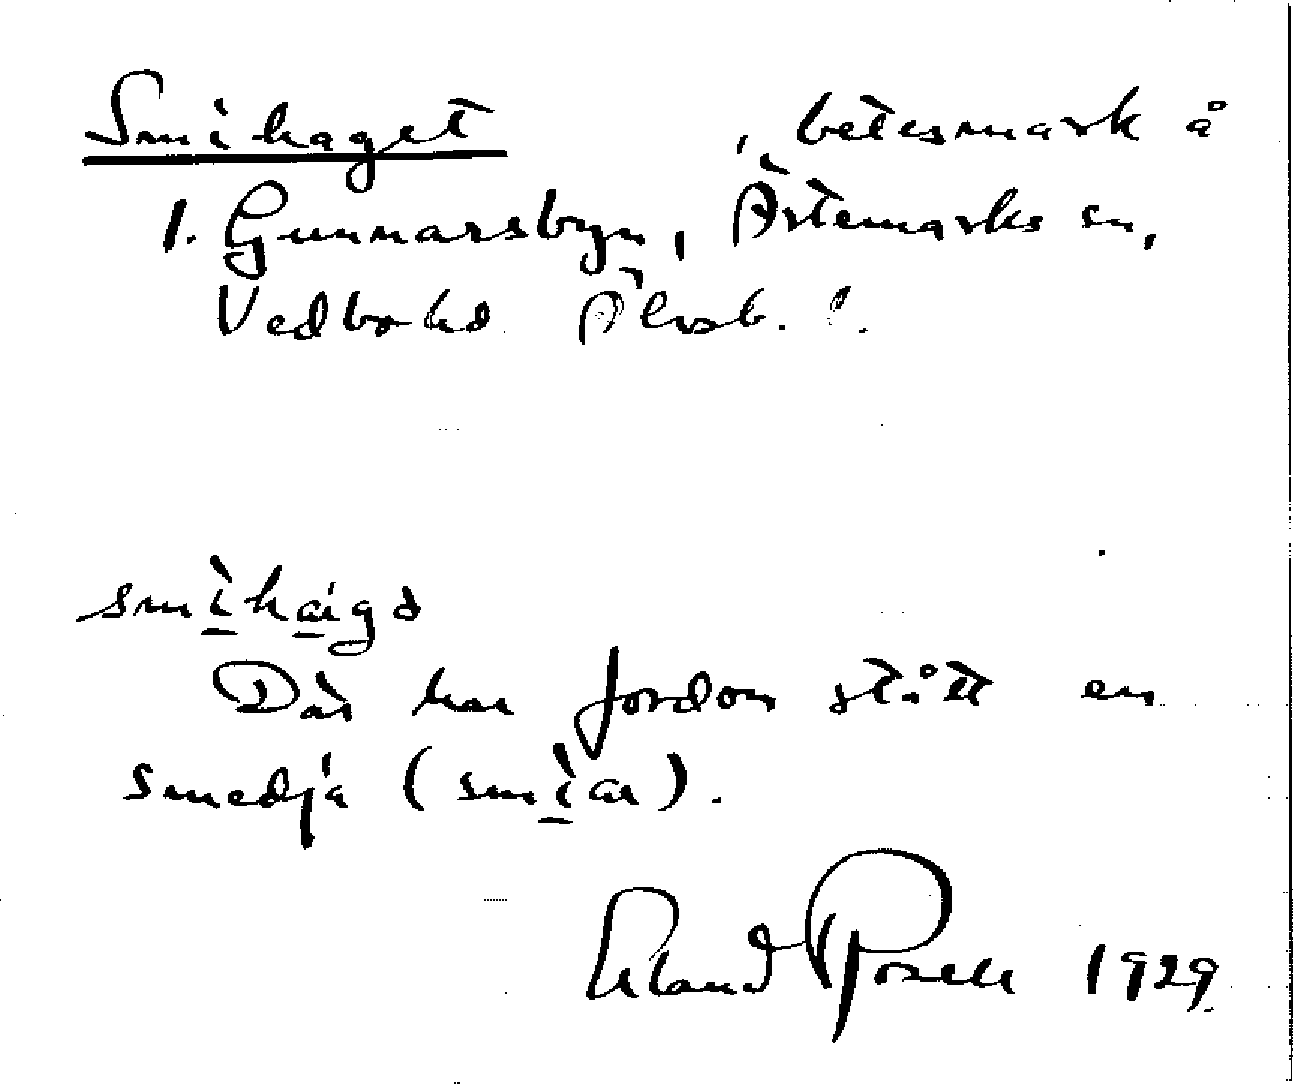 Smihaget , betesmark å
1. Gunnarsbyn, Ärtemarks sn,
Vedbo hd Älvsb. l.
smìhaigə
Där har fordom stått en
smedja (smìar).
Erland Rosell 1929